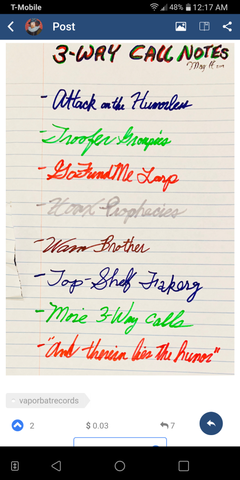 T-Mobile 48% 12:17 AM
Post
3-WAY CALL NOTES
- Attack on the Humorless
- Troofer Groupies
- GoFundMe Larp
- Hoax Prophecies
- Warm Brother
- Top-Shelf
- More 3-Way Calls
- "And therein lies the humor"
vaporbatrecords
2 $ 0.03 7